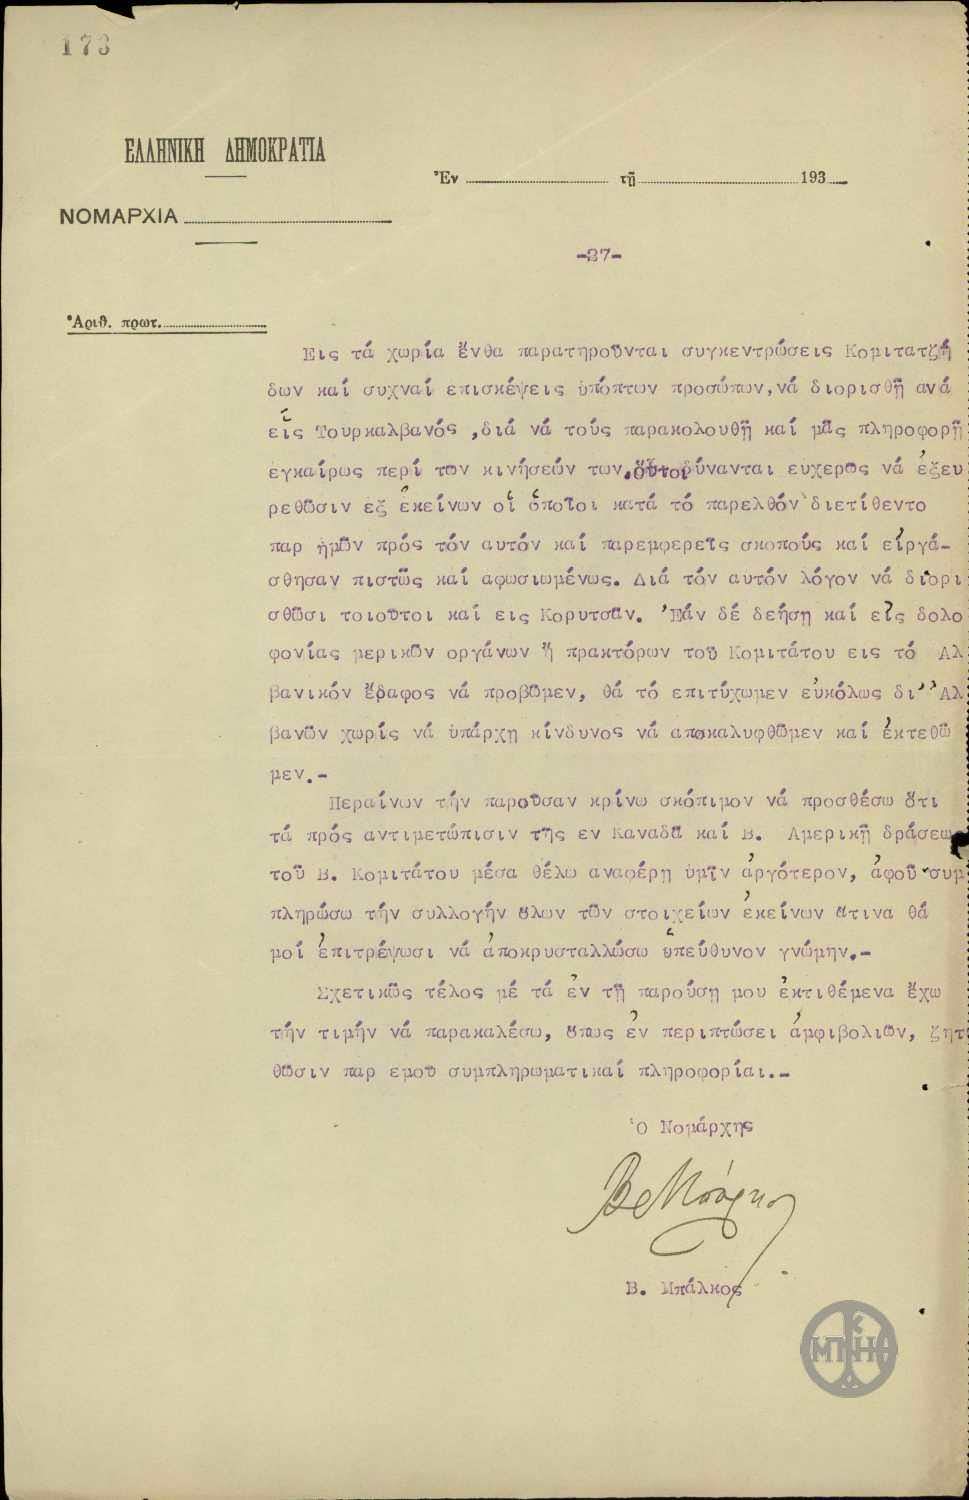 173
ΕΛΛΗΝΙΚΗ ΔΗΜΟΚΡΑΤΙΑ
Ἐν τῇ 193
ΝΟΜΑΡΧΙΑ
-27-
Ἀριθ. πρωτ.
Εις τά χωρία ἔνθα παρατηροῦνται συγκεντρώσεις Κομιτατζή
δων καί συχναί επισκέψεις ὑπόπτων προσώπων, νά διορισθῇ ανά
εἷς Τουρκαλβανός, διά νά τούς παρακολουθῇ καί μᾶς πληροφορῇ
εγκαίρως περί των κινήσεών των. οὗτοι δύνανται ευχερῶς νά ἐξευ
ρεθῶσιν εξ ἐκείνων οἱ ὁποῖοι κατά τό παρελθόν διετίθεντο
παρ ἡμῶν πρός τόν αυτόν καί παρεμφερεῖς σκοπούς καί εἰργά-
σθησαν πιστῶς καί αφωσιωμένως. Διά τόν αυτόν λόγον νά διορι
σθῶσι τοιοῦτοι καί εις Κορυτσᾶν. Ἐάν δέ δεήσῃ καί εἰς δολο
φονίας μερικῶν οργάνων ἤ πρακτόρων τοῦ Κομιτάτου εις τό Αλ
βανικόν ἔδαφος νά προβῶμεν, θά τό επιτύχωμεν εὐκόλως δι' Ἀλ
βανῶν χωρίς νά ὑπάρχῃ κίνδυνος νά αποκαλυφθῶμεν καί ἐκτεθῶ
μεν.-
Περαίνων τήν παροῦσαν κρίνω σκόπιμον νά προσθέσω ὅτι
τά πρός αντιμετώπισιν τῆς εν Καναδᾶ καί Β. Αμερικῇ δράσεω
τοῦ Β. Κομιτάτου μέσα θέλω αναφέρῃ ὑμῖν ἀργότερον, ἀφοῦ συμ
πληρώσω τήν συλλογήν ὅλων τῶν στοιχείων ἐκείνων ἅτινα θά
μοί ἐπιτρέψωσι νά ἀποκρυσταλλώσω ὑπεύθυνον γνώμην.-
Σχετικῶς τέλος μέ τά ἐν τῇ παρούσῃ μου ἐκτιθέμενα ἔχω
τήν τιμήν νά παρακαλέσω, ὅπως ἐν περιπτώσει ἀμφιβολιῶν, ζητ
θῶσιν παρ εμοῦ συμπληρωματικαί πληροφορίαι.-
Ὁ Νομάρχης
Β. Μπάλκος
ΜΠΚΗΑ